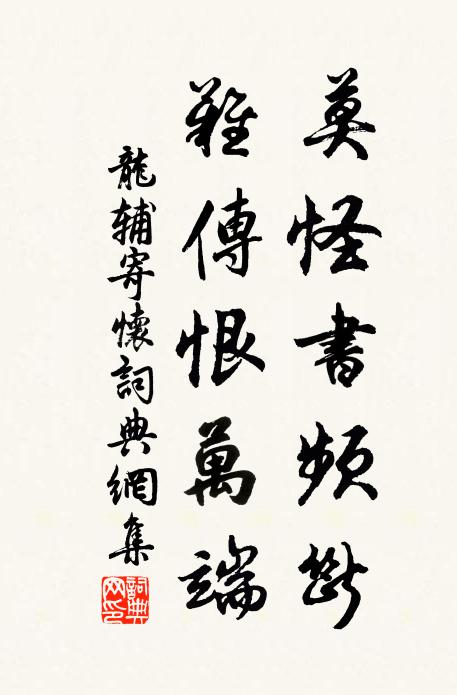 莫怪書頻斷
難傳恨萬端
龍輔寄懷詞典網集
詞典网印